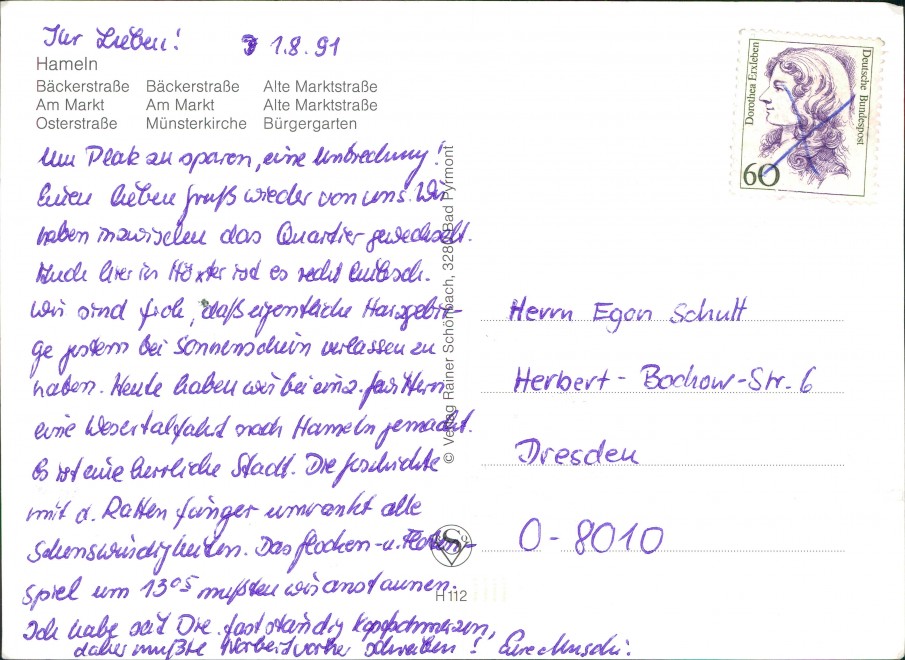 Ihr Lieben! 1.8.91
Hameln
Bäckerstraße Bäckerstraße Alte Marktstraße
Am Markt Am Markt Alte Marktstraße
Osterstraße Münsterkirche Bürgergarten
Um Platz zu sparen, eine Unterbrechung!
Einen lieben Gruß wieder von uns. Wir
haben inzwischen das Quartier gewechselt.
Auch hier in Höxter ist es recht hübsch.
Wir sind froh, daß eigentliche Harzgebir-
ge gestern bei Sonnenschein verlassen zu
haben. Heute haben wir bei
eine Wesertalfahrt nach Hameln gemacht.
Es ist eine herrliche Stadt. Die Geschichte
mit d. Rattenfänger umrankt alle
Sehenswürdigkeiten. Das Glocken- u. Figuren-
spiel um 13⁰⁵ mußten wir anstaunen.
Ich habe seit Die. fast ständig Kopfschmerzen,
daher mußte Herbert vorher schreiben! Eure
© Verlag Rainer Schönbach, 3280 Bad Pyrmont
H 112
Dorothea Erxleben
Deutsche Bundespost
60
Herrn Egon Schutt
Herbert-Bochow-Str. 6
Dresden
O-8010